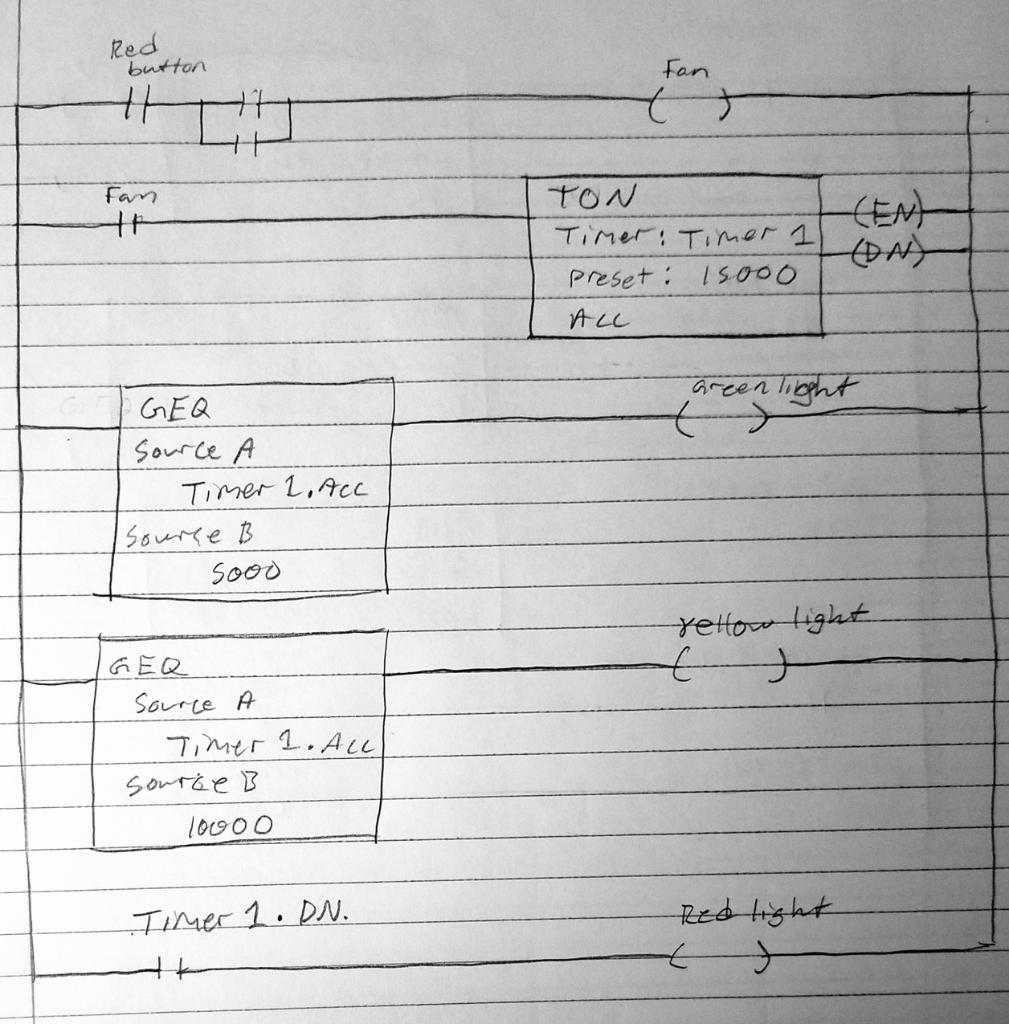 Red
button
Fan
Fan
TON
Timer: Timer 1
Preset: 15000
Acc
(EN)
(DN)
Green light
GEQ
Source A
Timer 1.Acc
Source B
5000
Yellow light
GEQ
Source A
Timer 1.Acc
Source B
10000
Timer 1.DN.
Red light